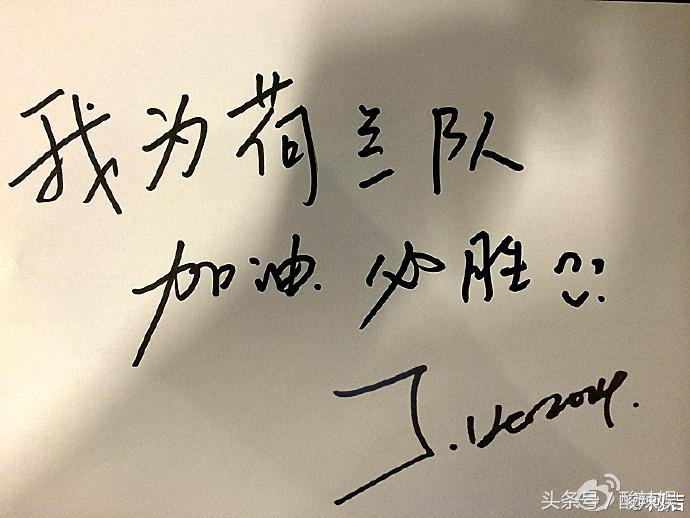 我为荷兰队
加油 必胜
头条号 / 酸辣娱